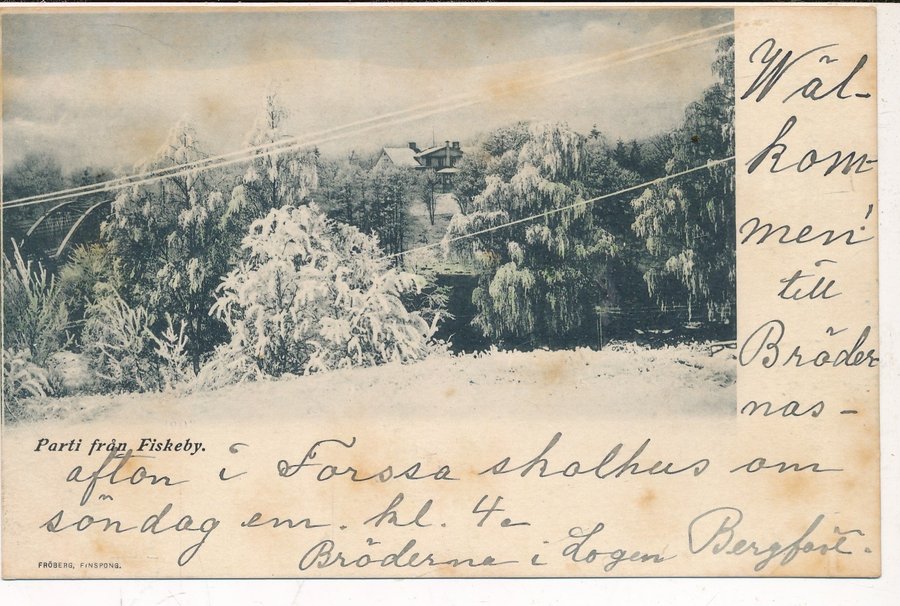 Wäl-
kom-
men!
till
Bröder
nas-
Parti från Fiskeby.
afton i Forssa skolhus om
söndag em. kl. 4.
Bröderna i Logen Bergfast.
FRÖBERG, FINSPONG.